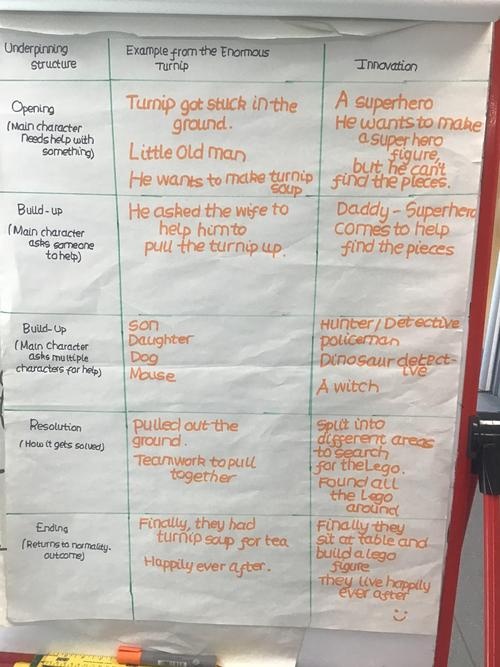 Underpinning
structure
Example from the Enormous
Turnip
Innovation
Opening
(Main character
needs help with
something)
Turnip got stuck in the
ground.
Little Old man
He wants to make turnip
soup
A superhero
He wants to make
a super hero
figure,
but he can't
find the pieces.
Build-up
(Main character
asks someone
to help)
He asked the wife to
help him to
pull the turnip up.
Daddy - Superhero
comes to help
find the pieces
Build-Up
(Main Character
asks multiple
characters for help)
Son
Daughter
Dog
Mouse
Hunter/Detective
policeman
Dinosaur detect-
ive
A witch
Resolution
(How it gets solved)
pulled out the
ground.
Teamwork to pull
together
Split into
different areas
to search
for the Lego.
Found all
the Lego
around
Ending
(Returns to normality.
outcome)
Finally, they had
turnip soup for tea
Happily ever after.
Finally they
sit at table and
build a lego
figure
They live happily
ever after